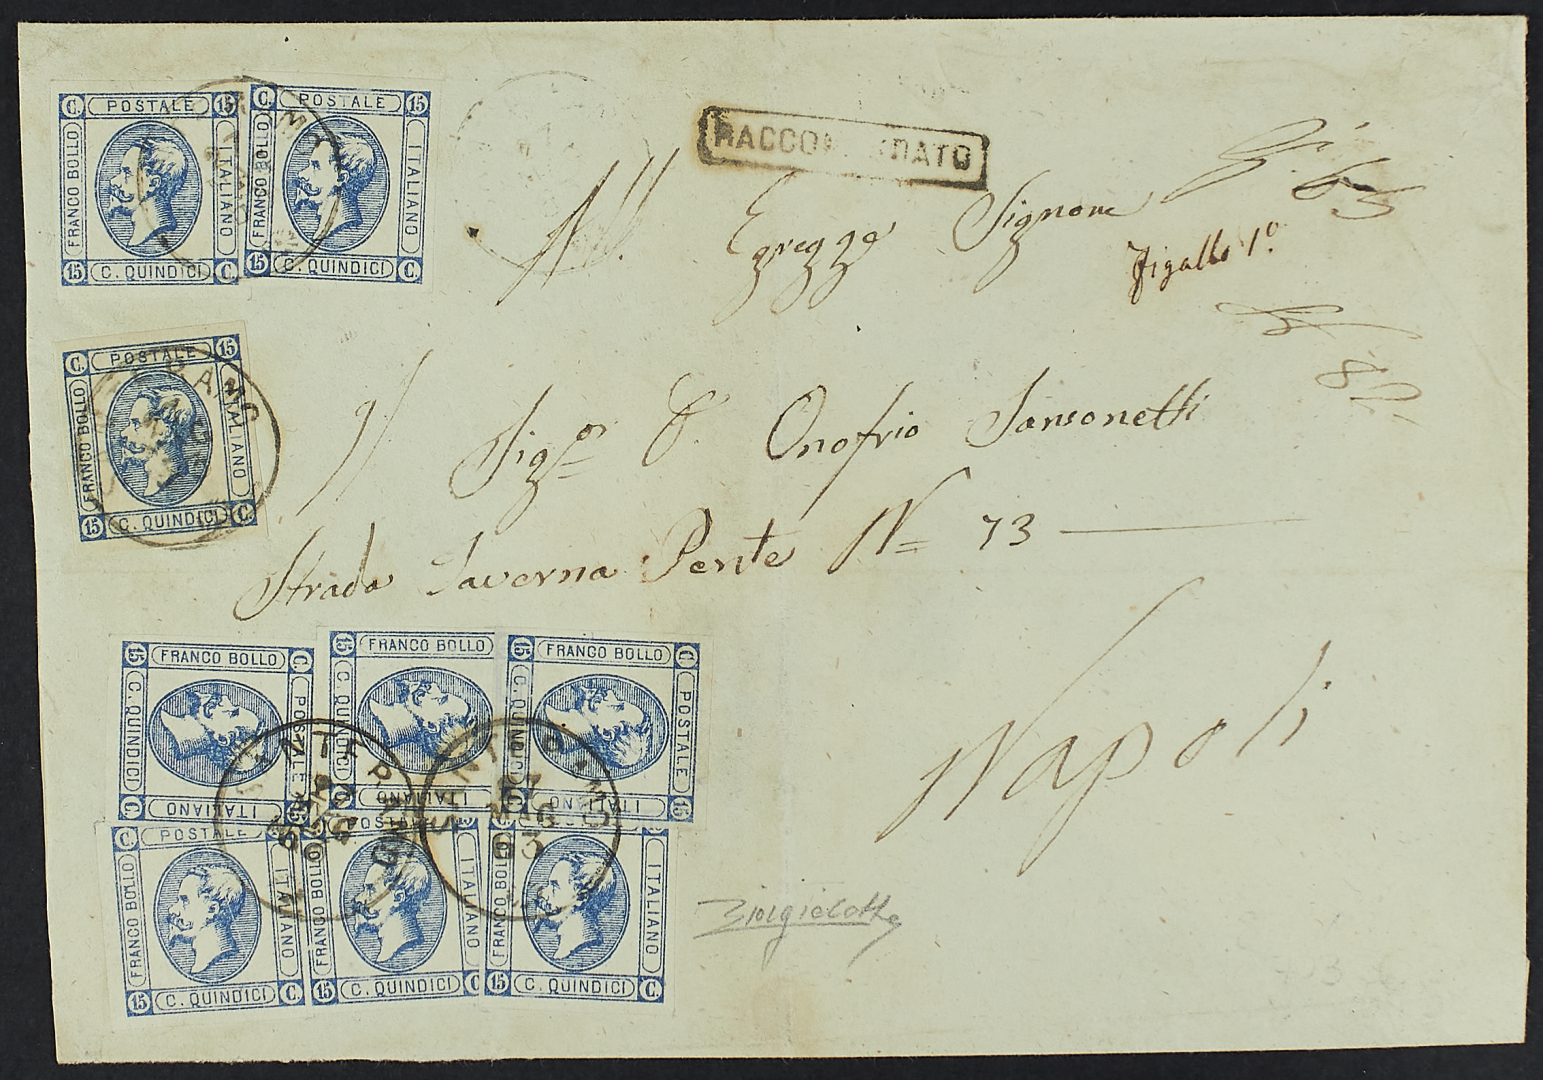 C. POSTALE 15
FRANCO BOLLO
ITALIANO
15 C. QUINDICI C.
C. POSTALE 15
FRANCO BOLLO
ITALIANO
15 C. QUINDICI C.
RACCOMANDATO
All' Egregge Signore
Figallo 1°
C. POSTALE 15
FRANCO BOLLO
ITALIANO
15 C. QUINDICI C.
Sigr D. Onofrio Sansonetti
Strada Taverna Pente N= 73
Napoli
15 FRANCO BOLLO C.
C. QUINDICI
POSTALE
ITALIANO
15 FRANCO BOLLO
C. QUINDICI
ITALIANO
15 FRANCO BOLLO C.
C. QUINDICI
POSTALE
ITALIANO 15
MAG
63
C. POSTALE
FRANCO BOLLO
ITALIANO
15 C. QUINDICI C.
POSTALE
FRANCO BOLLO
ITALIANO
15 C. QUINDICI C.
FRANCO BOLLO
ITALIANO
15 C. QUINDICI C.